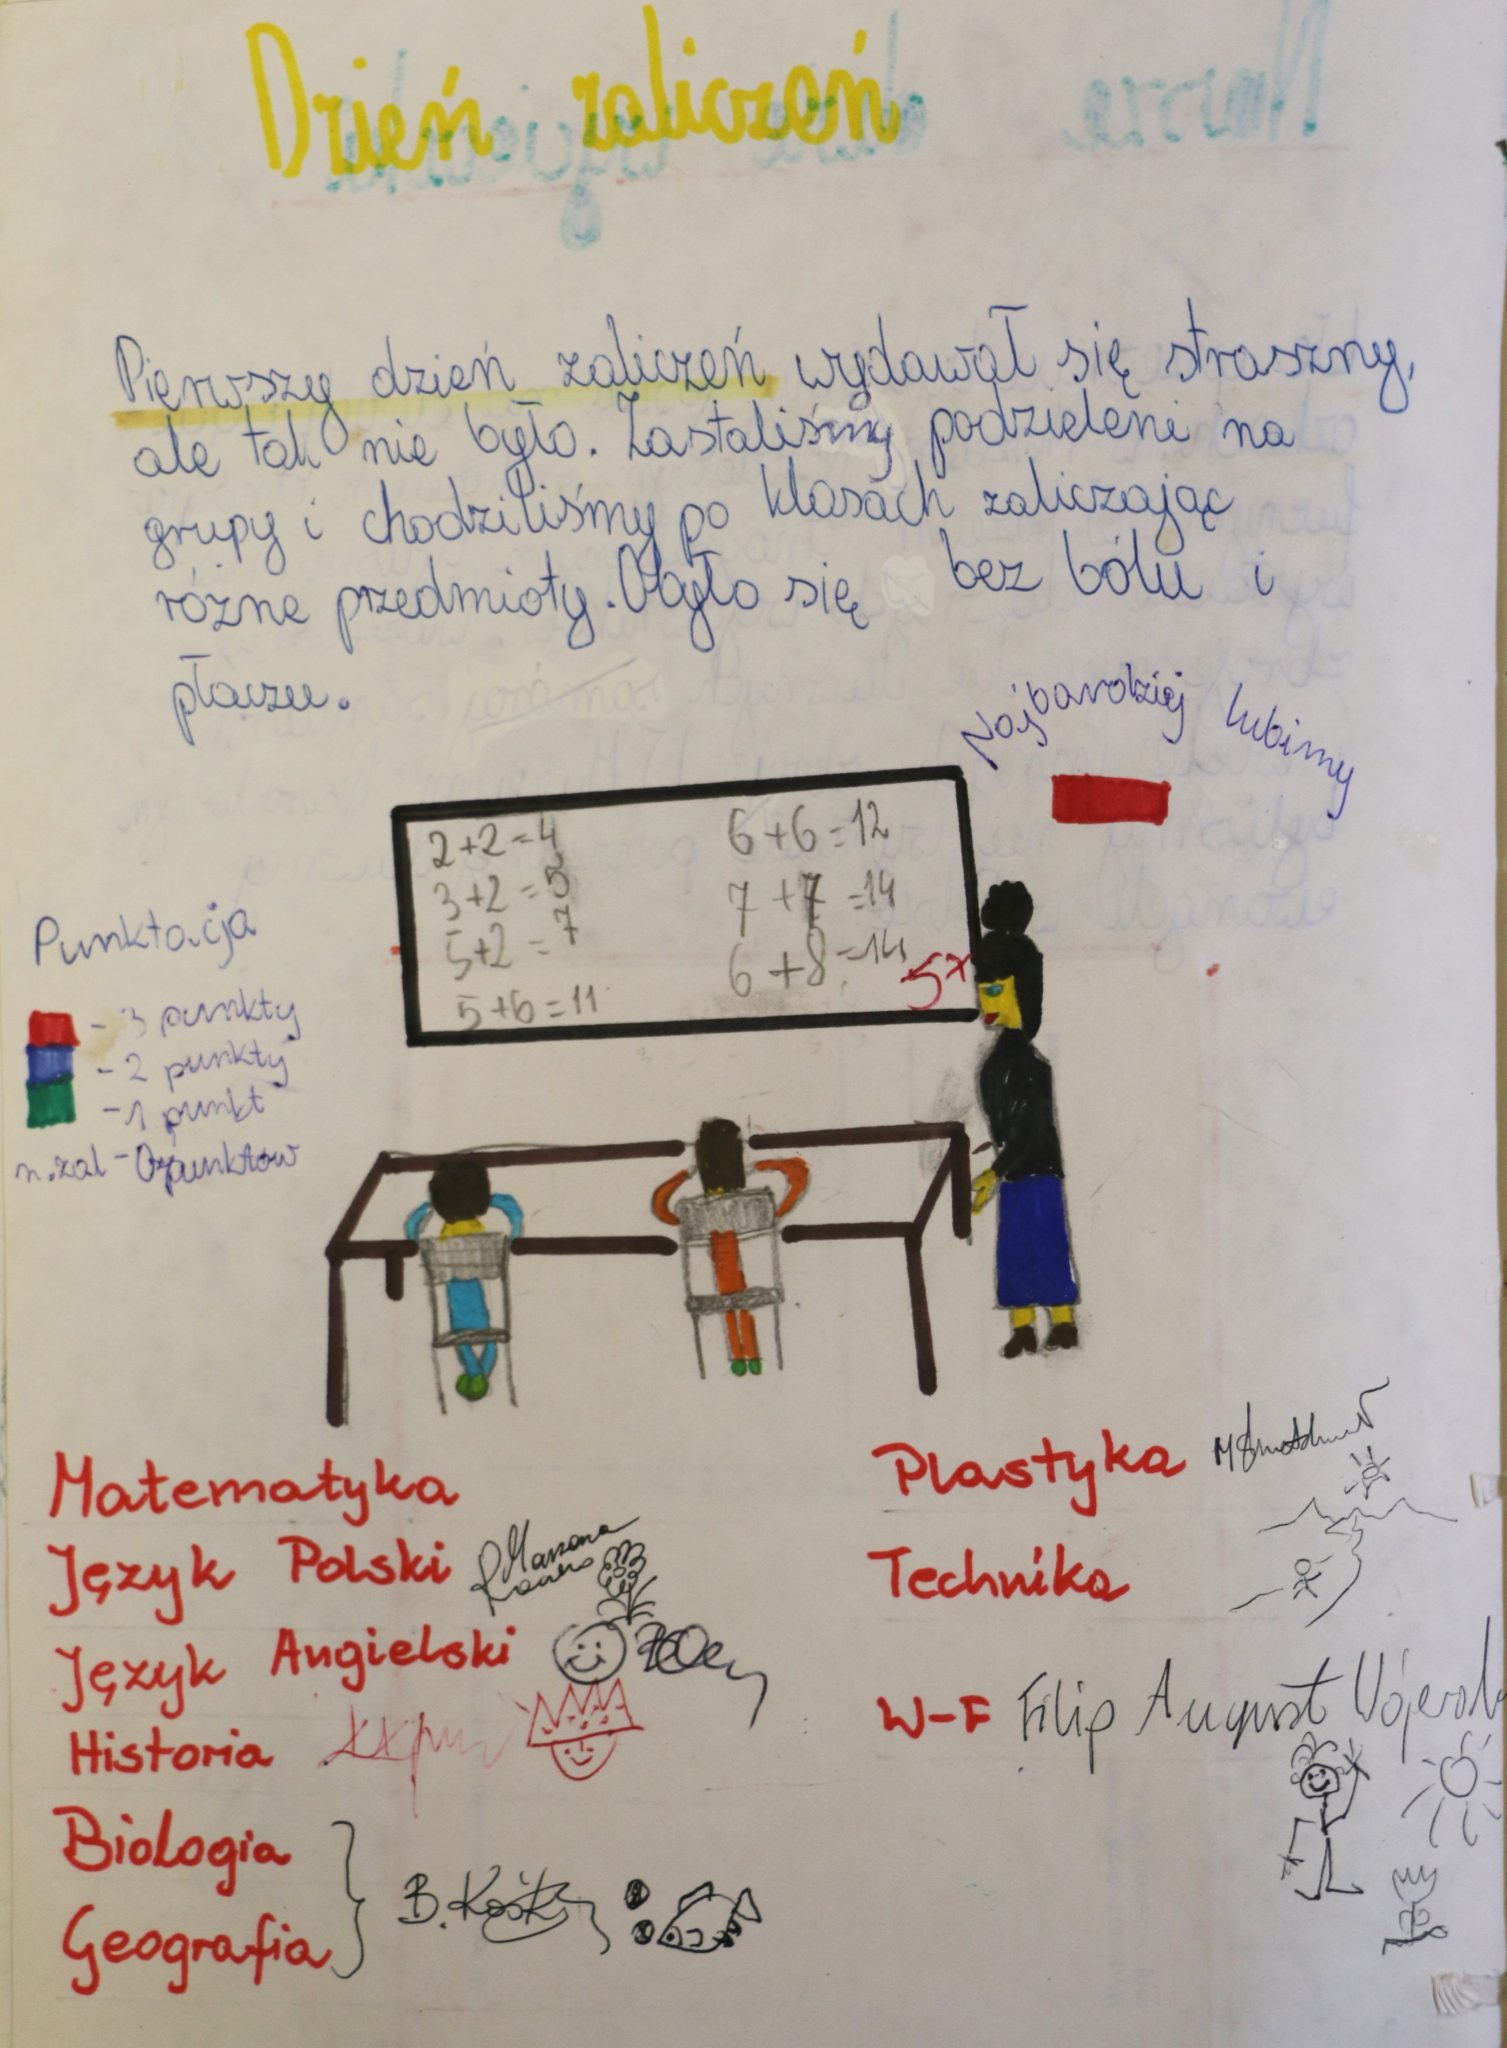 Dzień zaliczeń
Pierwszy dzień zaliczeń wydawał się straszny,
ale tak nie było. Zastaliśmy podzieleni na
grupy i chodziliśmy po klasach zaliczając
różne przedmioty. Obyło się bez bólu i
płaczu.
Najbardziej lubimy
2+2=4
3+2=5
5+2=7
5+6=11
6+6=12
7+7=14
6+8=14
5+
Punktacja
- 3 punkty
- 2 punkty
- 1 punkt
n.zal - 0 punktów
Matematyka
Język Polski
Język Angielski
Historia
Biologia
Geografia
B.
Plastyka
Technika
W-F Filip August